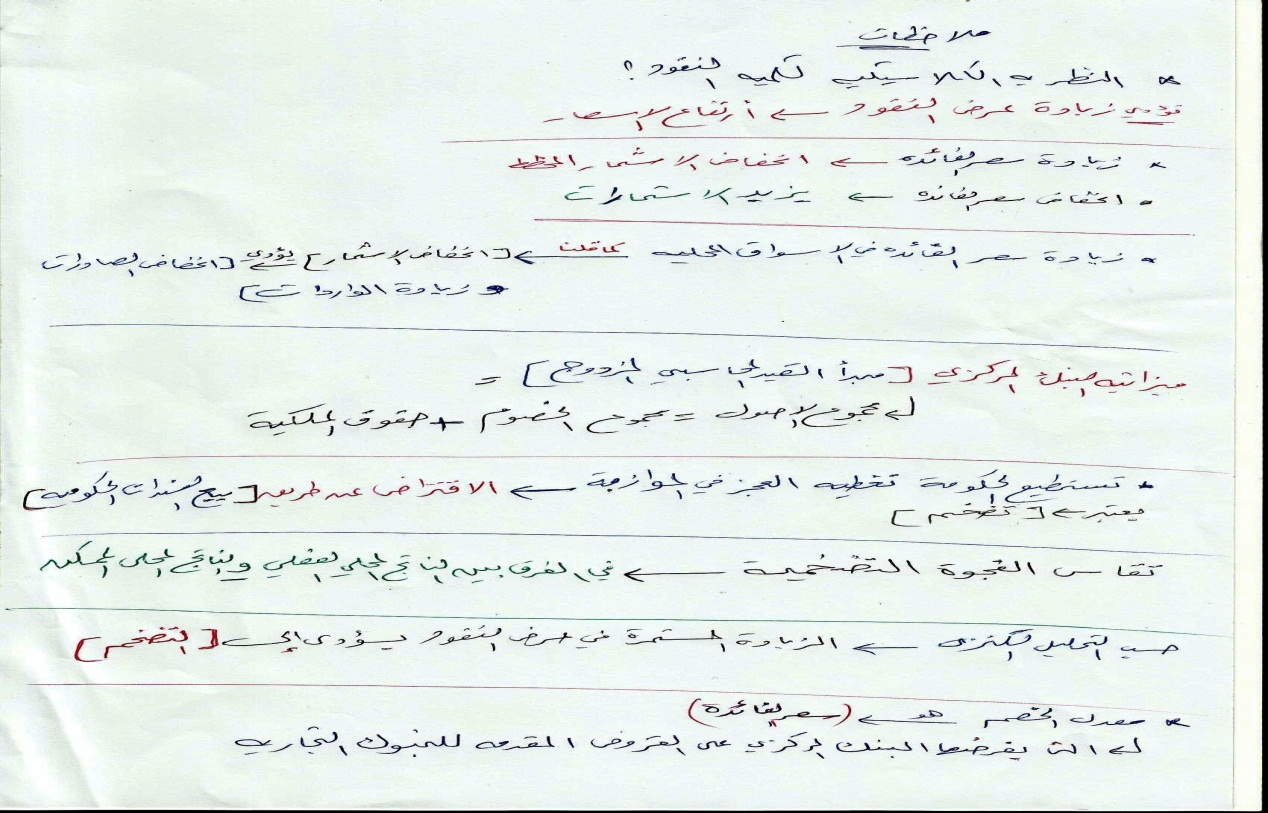 ملاحظات
* النظرية الكلاسيكية لكمية النقود ؟
تؤدي زيادة عرض النقود ← أرتفاع الاسعار
* زيادة سعر الفائده ← انخفاض الاستثمار المخطط
• انخفاض سعر الفائده ← يزيد الاستثمارات
• زيادة سعر الفائده في الاسواق المحليه كما قلنا ← [انخفاض الاستثمار] يؤدي ← [انخفاض الصادرات
و زيادة الواردات]
ميزانيه البنك المركزي [مبدأ القيد المحاسبي المزدوج] =
مجموع الاصول = مجموع الخصوم + حقوق الملكية
• تستطيع الحكومة تغطيه العجز في الموازنة ← الاقتراض عن طريق [بيع السندات الحكوميه]
يعتبر ← [تضخم]
تقاس الفجوة التضخمية ← في الفرق بين الناتج المحلي الفعلي والناتج المحلي الممكن
حسب التحليل الكنزي ← الزيادة المستمرة في عرض النقود يؤدي إلى ← [التضخم]
* معدل الخصم هو ← (سعر الفائدة)
التي يفرضها البنك المركزي على القروض المقدمه للبنوك التجاريه